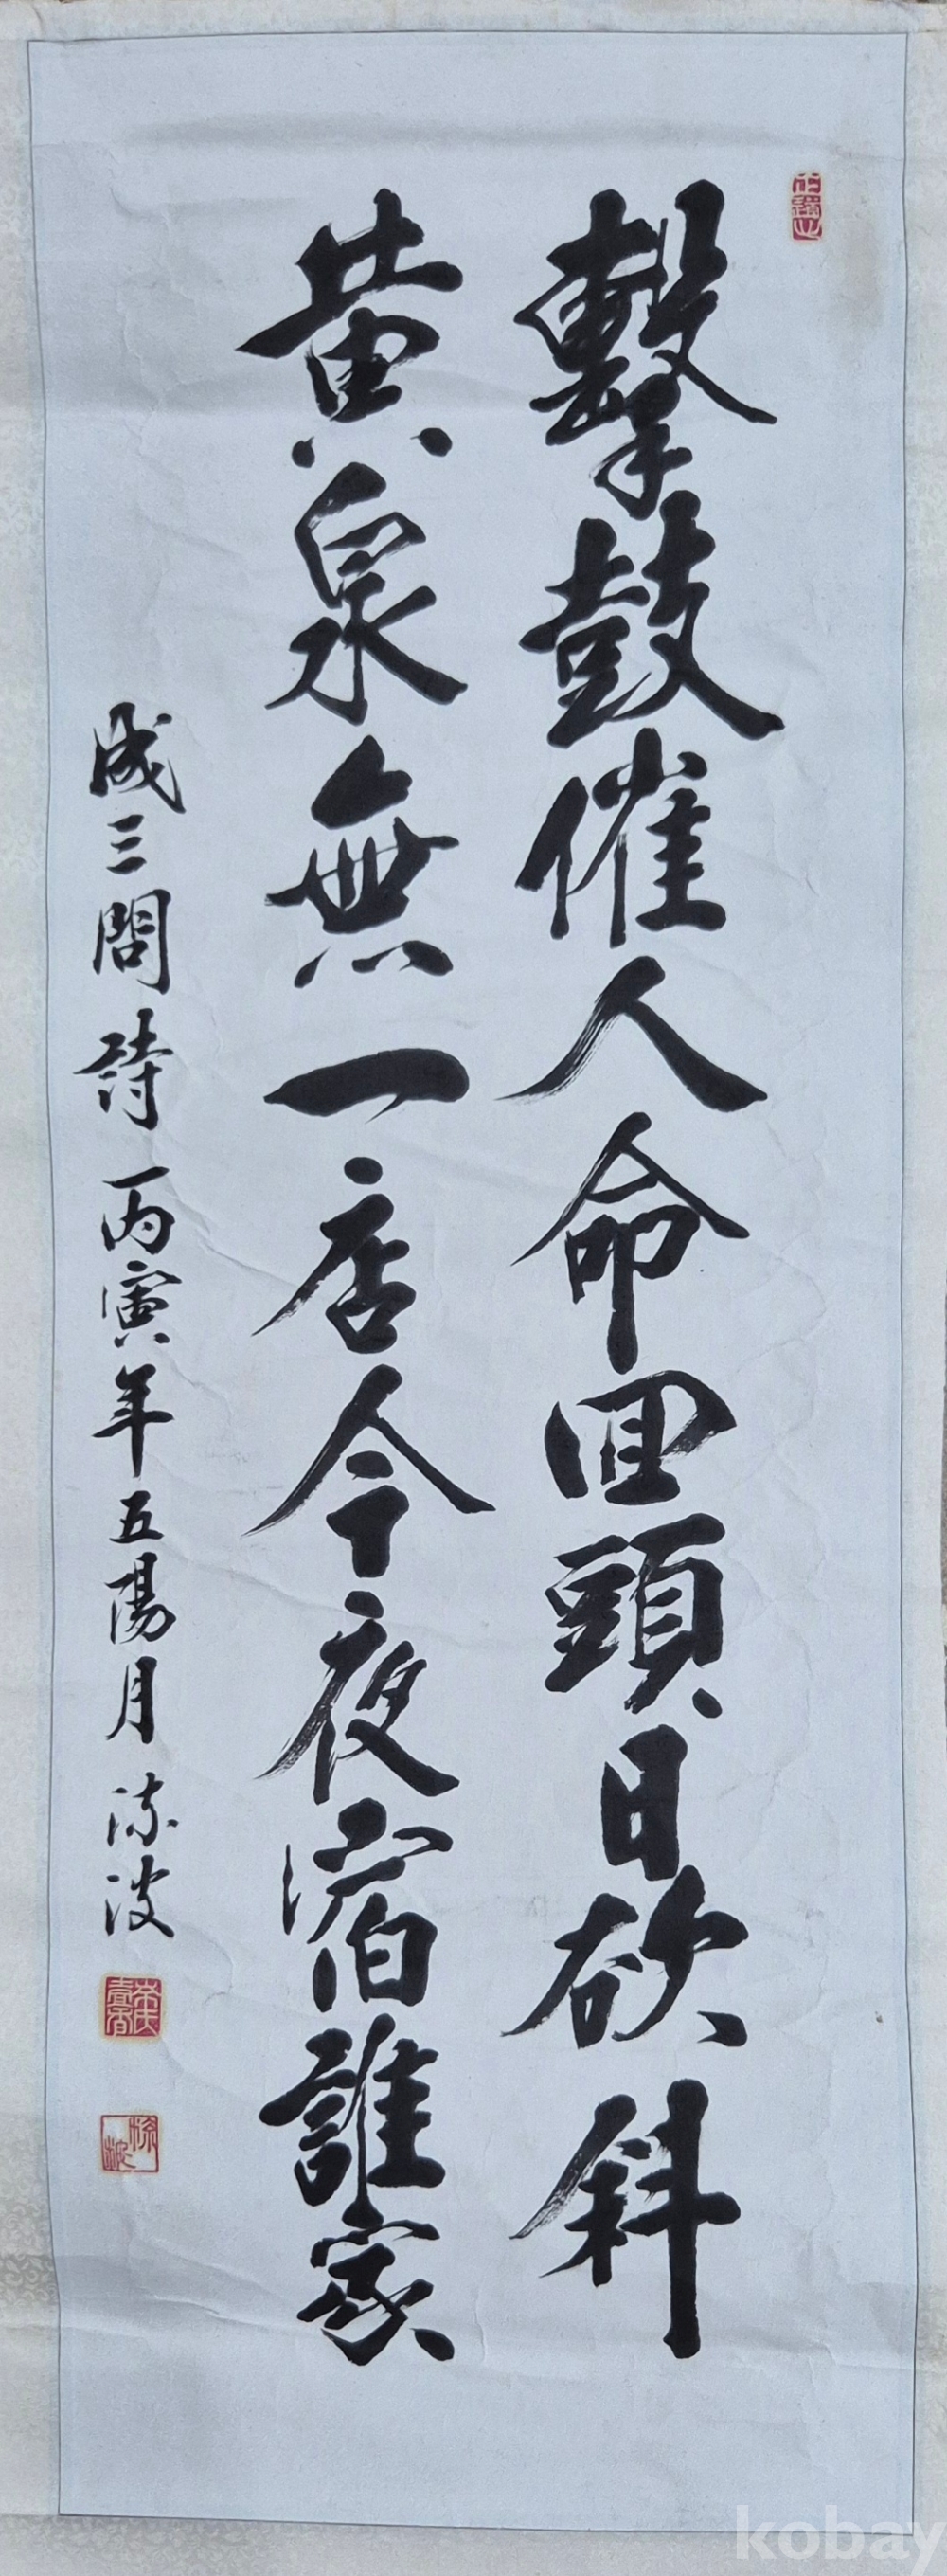 擊鼓催人命回頭日欲斜
黄泉無一店今夜宿誰家
成三問詩 丙寅年五陽月
kobay